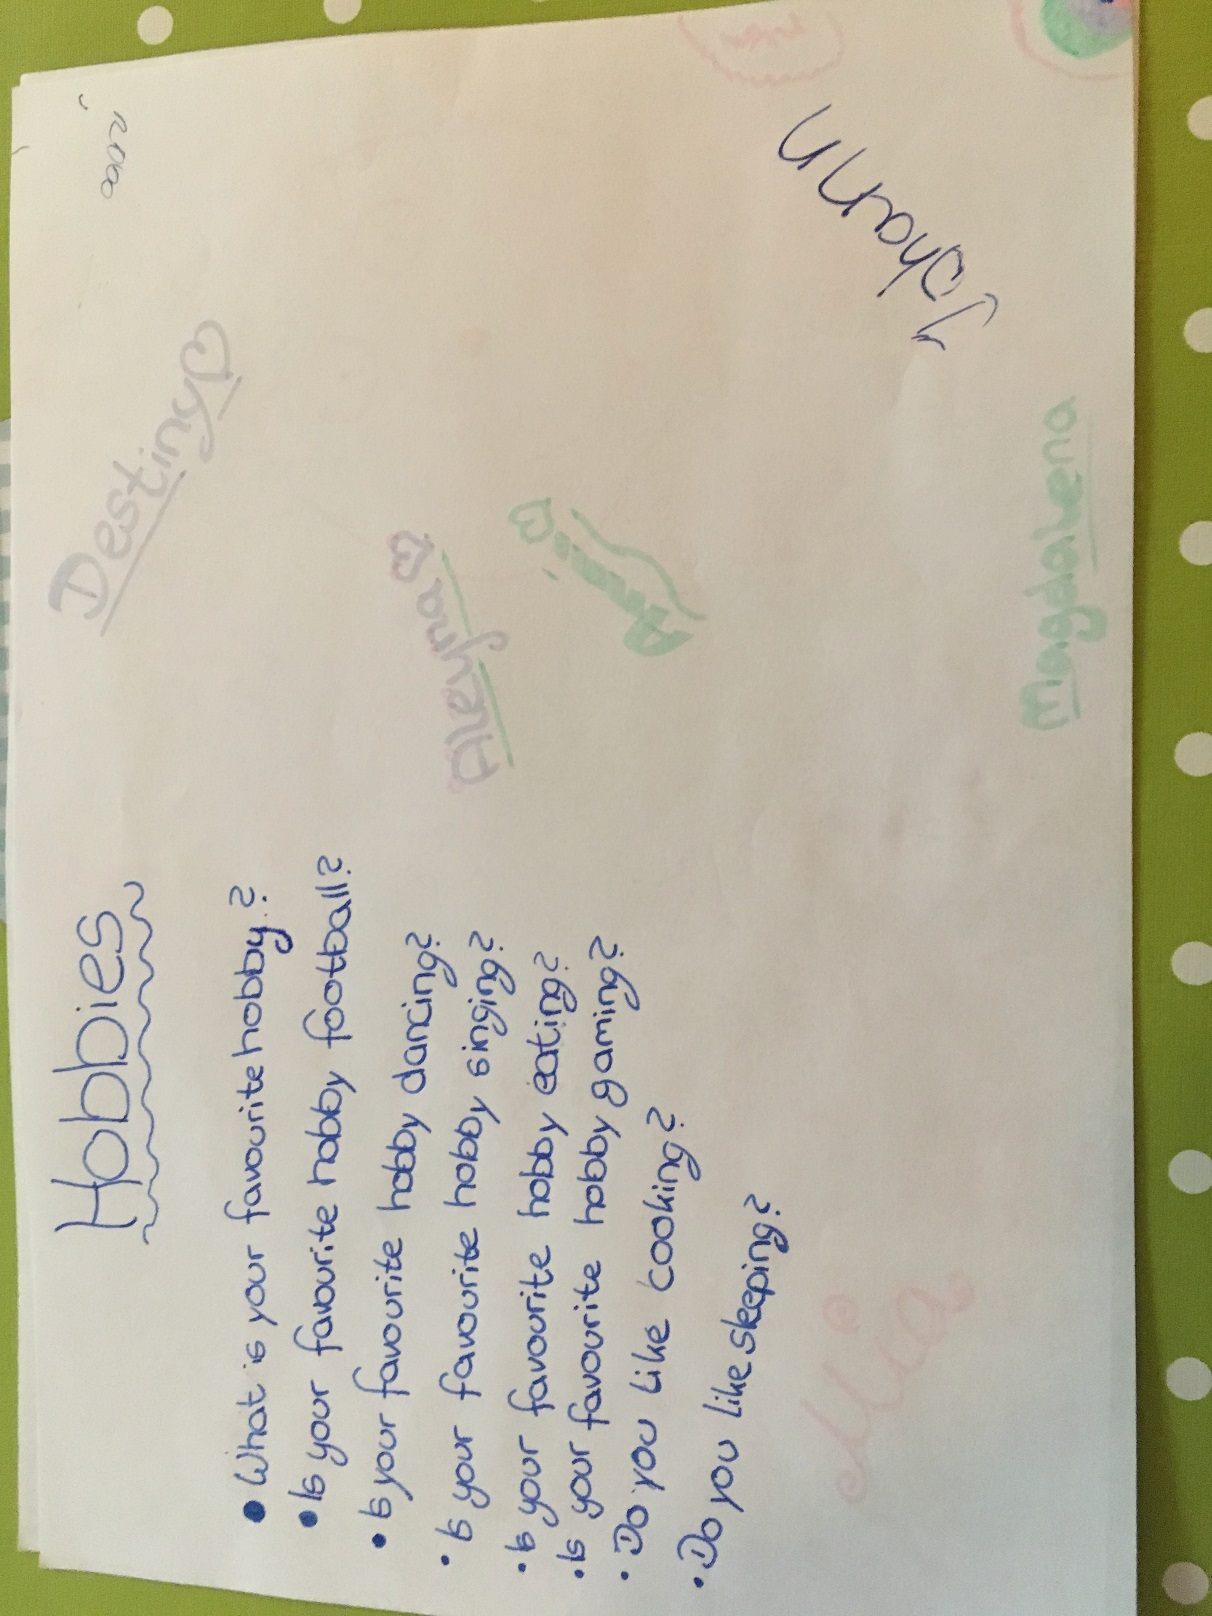 Hobbies
• What is your favourite hobby?
• Is your favourite hobby football?
• Is your favourite hobby dancing?
• Is your favourite hobby singing?
• Is your favourite hobby eating?
• Is your favourite hobby gaming?
• Do you like cooking?
• Do you like sleeping?
Destiny♡
Aleyna♡
Johann
Magdalena
Mia